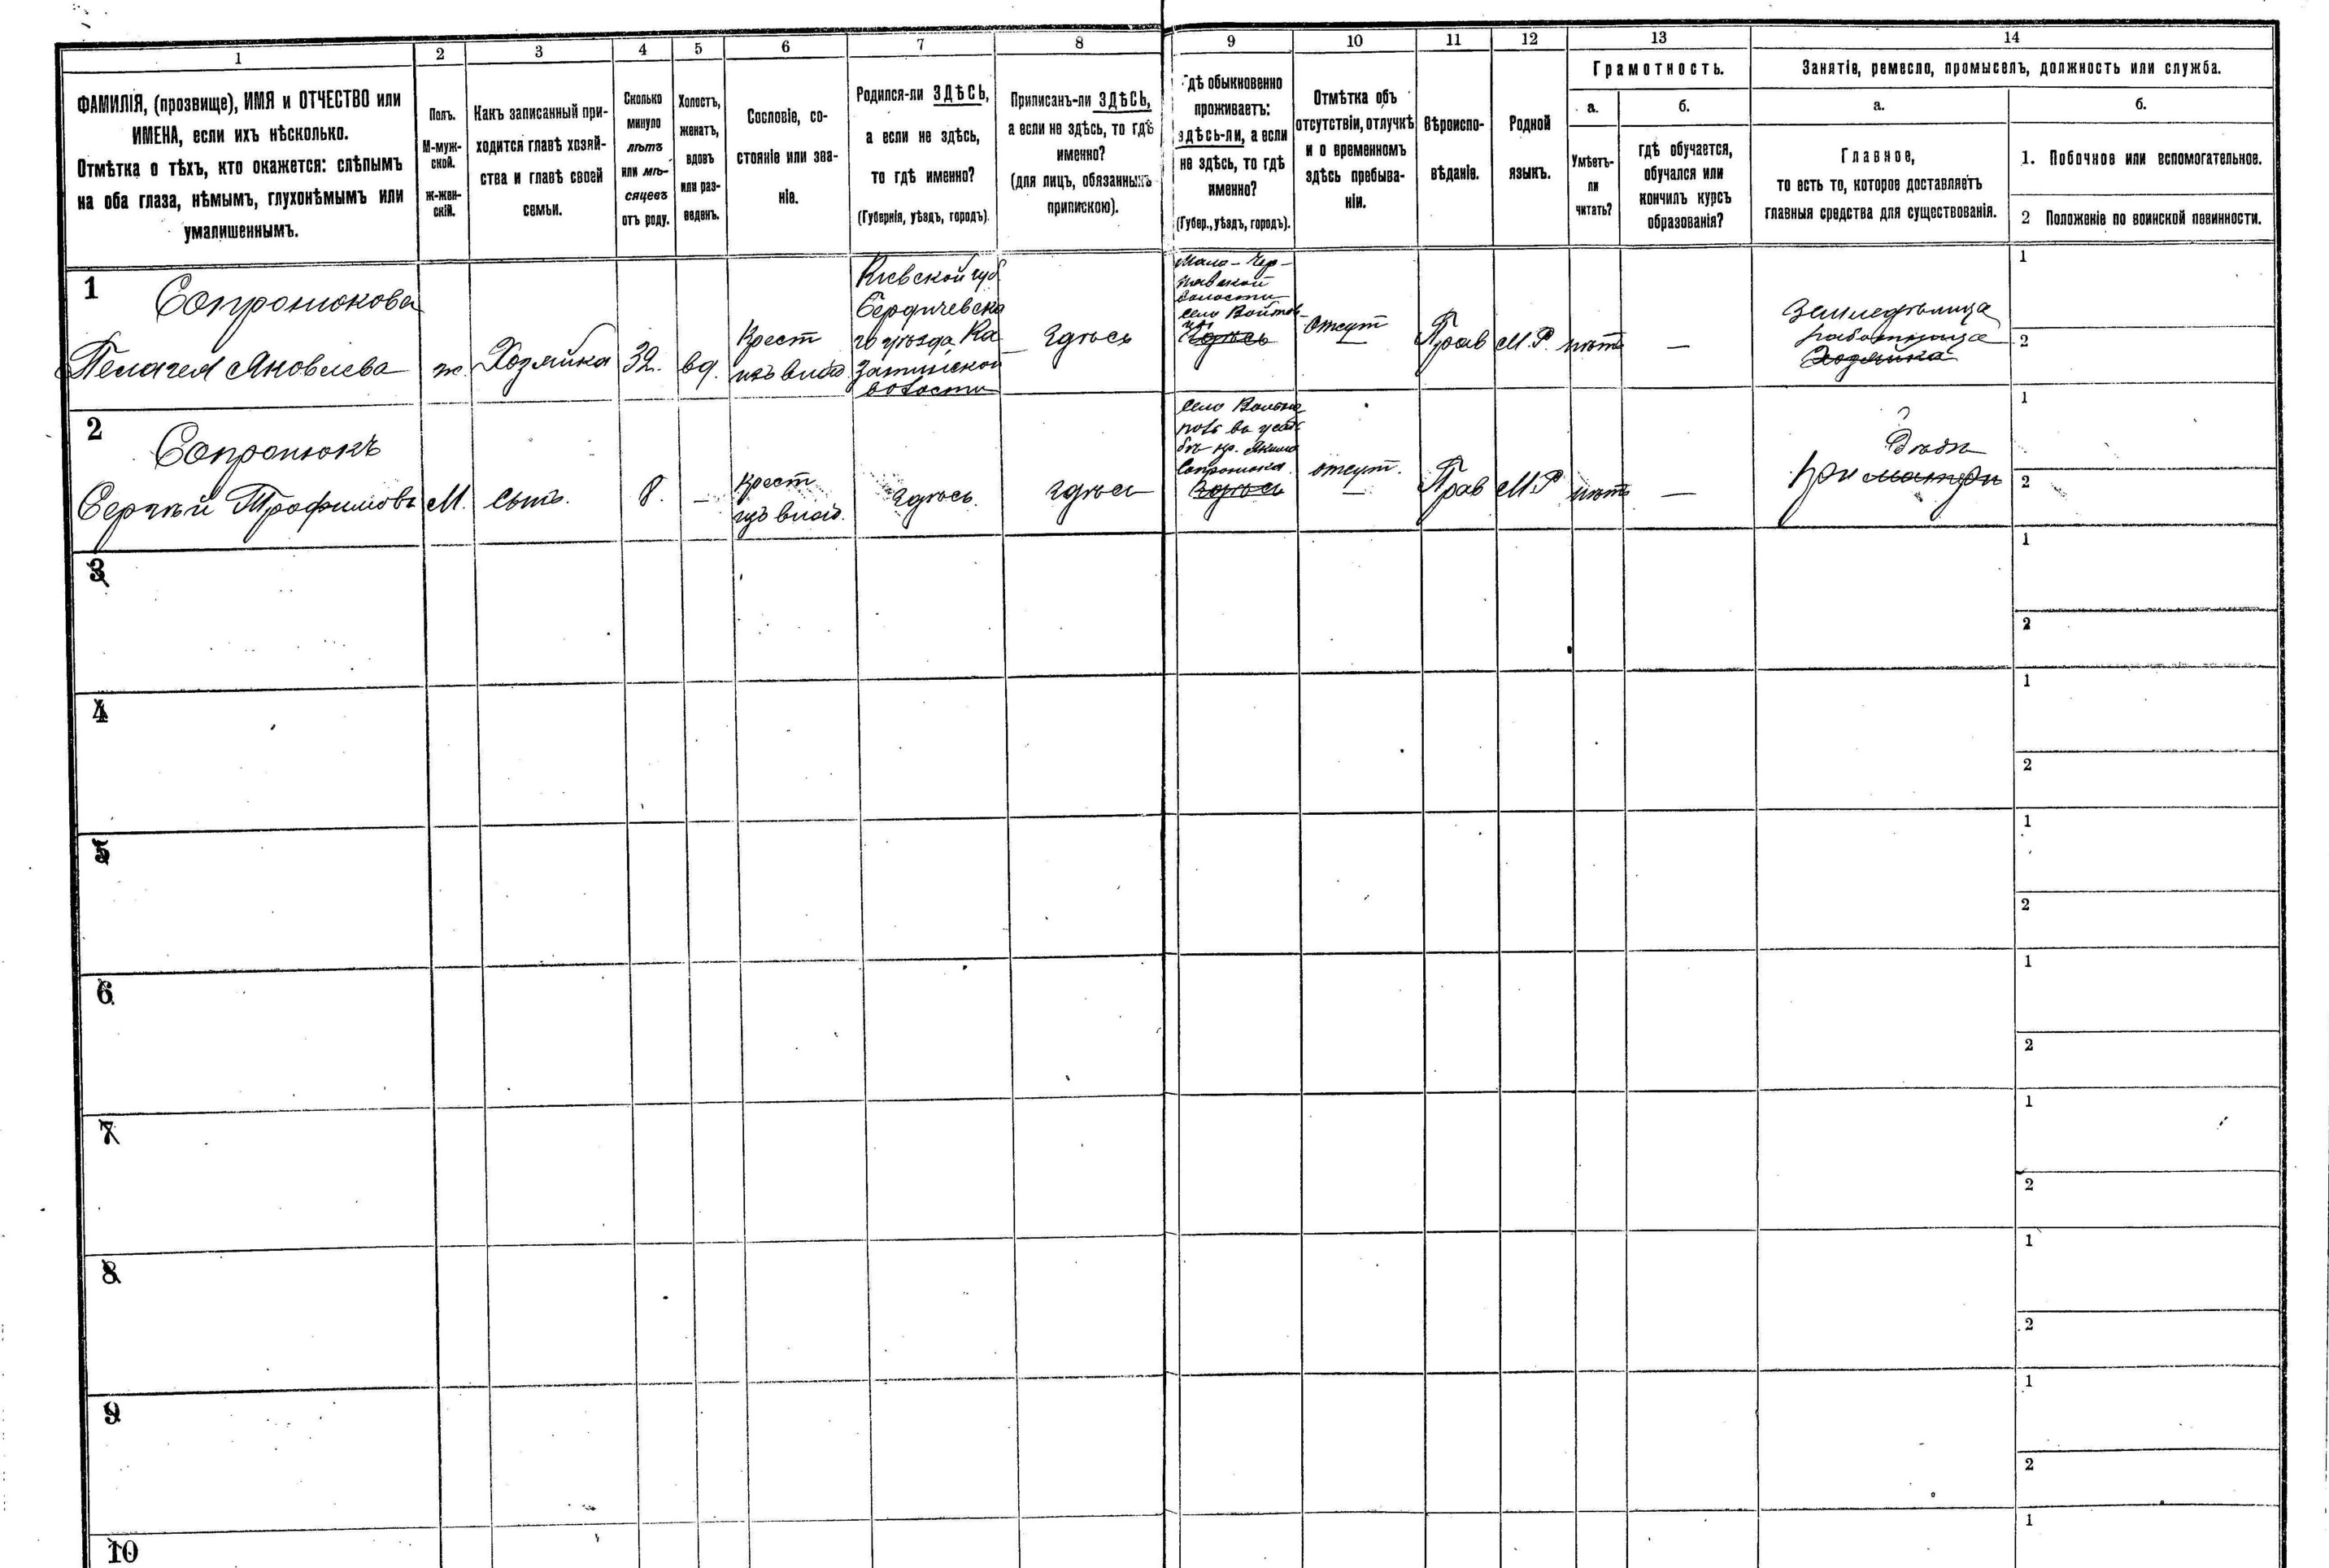 1 2 3 4 5 6 7 8 9 10 11 12 13 14
ФАМИЛІЯ, (прозвище), ИМЯ и ОТЧЕСТВО или
ИМЕНА, если ихъ нѣсколько.
Отмѣтка о тѣхъ, кто окажется: слѣпымъ
на оба глаза, нѣмымъ, глухонѣмымъ или
умалишеннымъ.
Полъ.
М-муж-
ской.
ж-жен-
скій.
Какъ записанный при-
ходится главѣ хозяй-
ства и главѣ своей
семьи.
Сколько
минуло
лѣтъ
или мѣ-
сяцевъ
отъ роду.
Холостъ,
женатъ,
вдовъ
или раз-
веденъ.
Сословіе, со-
стояніе или зва-
ніе.
Родился-ли ЗДѢСЬ,
а если не здѣсь,
то гдѣ именно?
(Губернія, уѣздъ, городъ).
Приписанъ-ли ЗДѢСЬ,
а если не здѣсь, то гдѣ
именно?
(для лицъ, обязанныхъ
припискою).
Гдѣ обыкновенно
проживаетъ:
здѣсь-ли, а если
не здѣсь, то гдѣ
именно?
(Губер., уѣздъ, городъ).
Отмѣтка объ
отсутствіи, отлучкѣ
и о временномъ
здѣсь пребыва-
ніи.
Вѣроиспо-
вѣданіе.
Родной
языкъ.
Грамотность.
а.
Умѣетъ-
ли
читать?
б.
гдѣ обучается,
обучался или
кончилъ курсъ
образованія?
Занятіе, ремесло, промыселъ, должность или служба.
а.
Главное,
то есть то, которое доставляетъ
главныя средства для существованія.
б.
1. Побочное или вспомогательное.
2 Положеніе по воинской повинности.
1
Сопронюкова
Пелагея Яковлева
ж.
Хозяйка
32.
вд.
Крест
изъ влад.
Кіевской губ
Бердичевска
го уѣзда Ка
затинской
волости
Здѣсь
Мало-Чер-
нявской
волости
село Войтов-
цы
Здѣсь
отсут
—
Прав
М.Р.
нѣтъ
—
Земледѣлица
работница
Хозяйка
1
2
2
Сопронюкъ
Сергѣй Трофимовъ
М.
сынъ.
8.
—
крест
изъ влад.
Здѣсь.
Здѣсь
село
Сопронюка
Здѣсь
отсут.
—
Прав
М.Р
нѣтъ
—
?
при матери
1
2
3
1
2
4
1
2
5
1
2
6
1
2
7
1
2
8
1
2
9
1
2
10
1